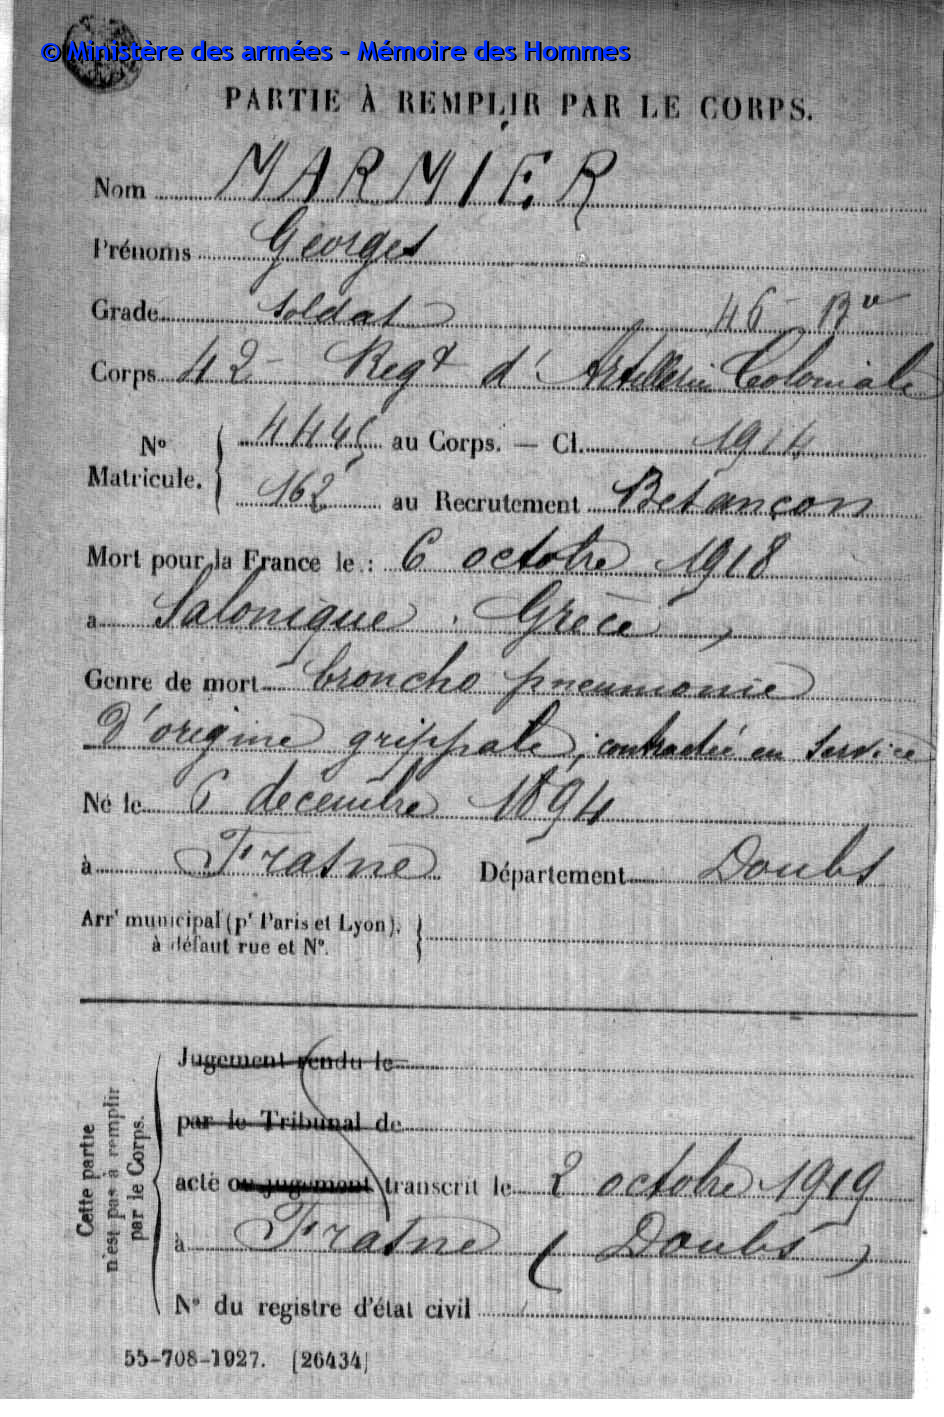 © Ministère des armées - Mémoire des Hommes
PARTIE À REMPLIR PAR LE CORPS.
Nom MARMIER
Prénoms Georges
Grade soldat 46 - Bie
Corps 42 - Regt d'Artillerie Coloniale
No Matricule. 4445 au Corps. — Cl. 1914
162 au Recrutement Besançon
Mort pour la France le : 6 octobre 1918
à Salonique . Grèce ,
Genre de mort broncho pneumonie
d'origine grippale, contractée en service
Né le 6 décembre 1894
à Frasne Département Doubs
Arrt municipal (pr Paris et Lyon),
à défaut rue et No.
Cette partie n'est pas à remplir par le Corps.
Jugement rendu le
par le Tribunal de
acte ou jugement transcrit le 2 octobre 1919
à Frasne (Doubs)
No du registre d'état civil
55-708-1927. [26434]